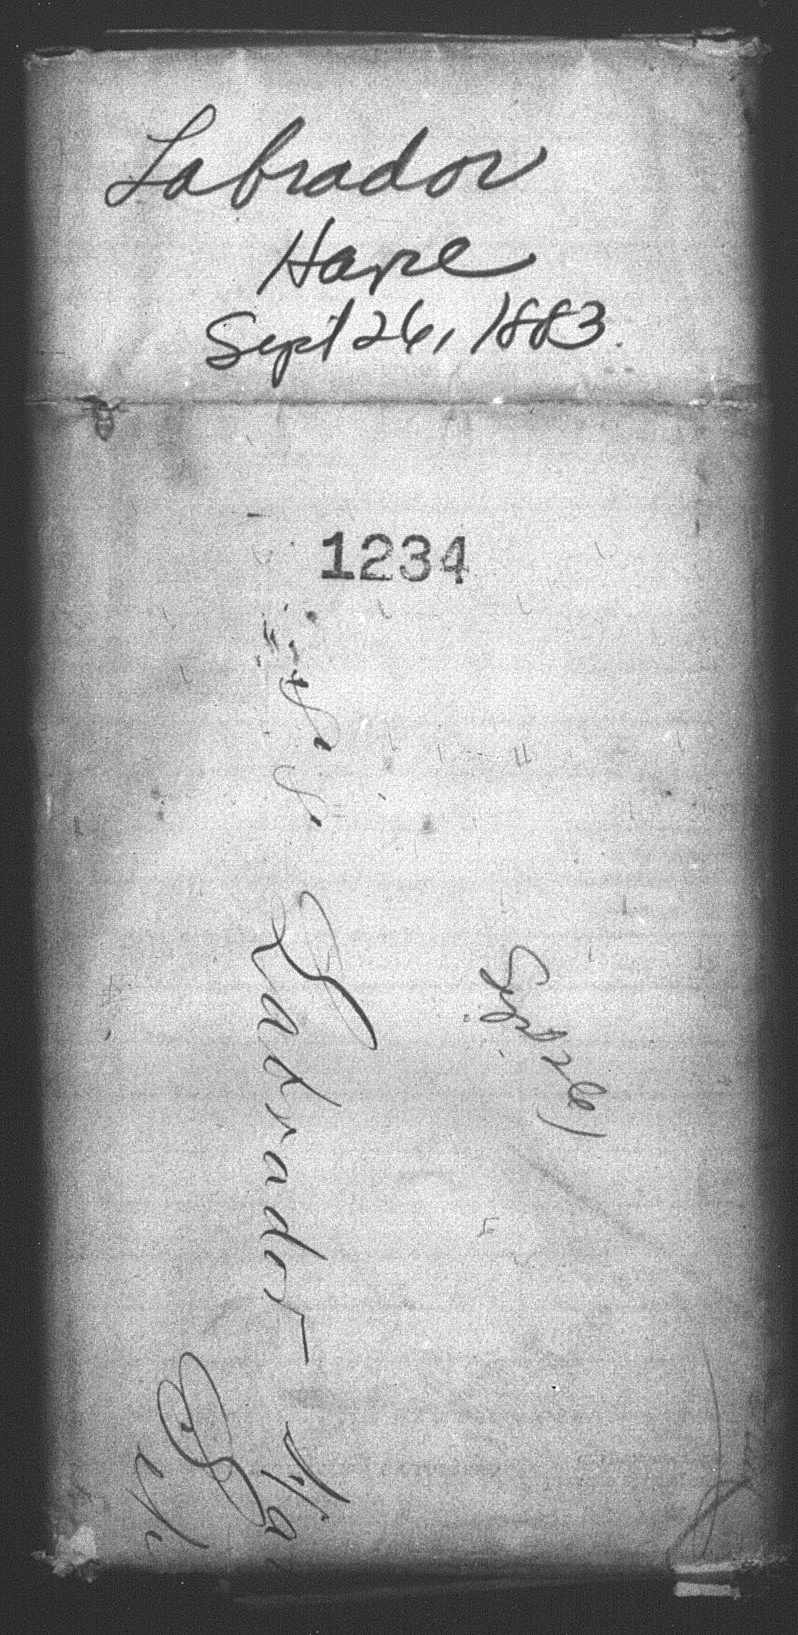 Labrador
Hare
Sept 26, 1883.
1234
S. S. Labrador
Sept 26/